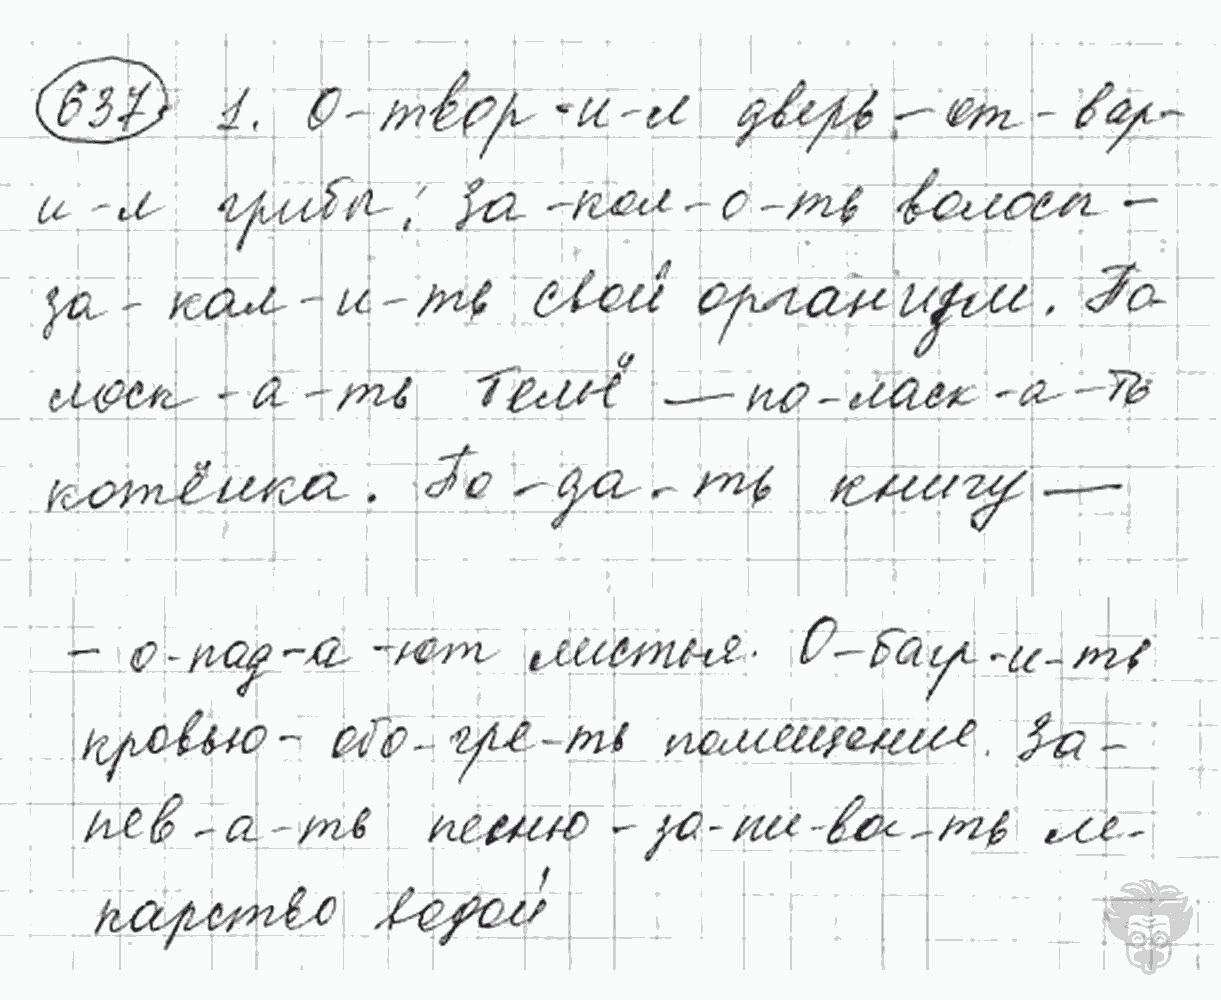 637. 1. О-твор-и-л дверь - от-вар-
и-л грибы; За-кол-о-ть волосы -
за-кал-и-ть свой организм. По-
лоск-а-ть бельё — по-ласк-а-ть
котёнка. По-да-ть книгу —
- о-пад-а-ют листья. О-багр-и-ть
кровью - обо-гре-ть помещение. За-
пев-а-ть песню - за-пи-ва-ть ле-
карство водой